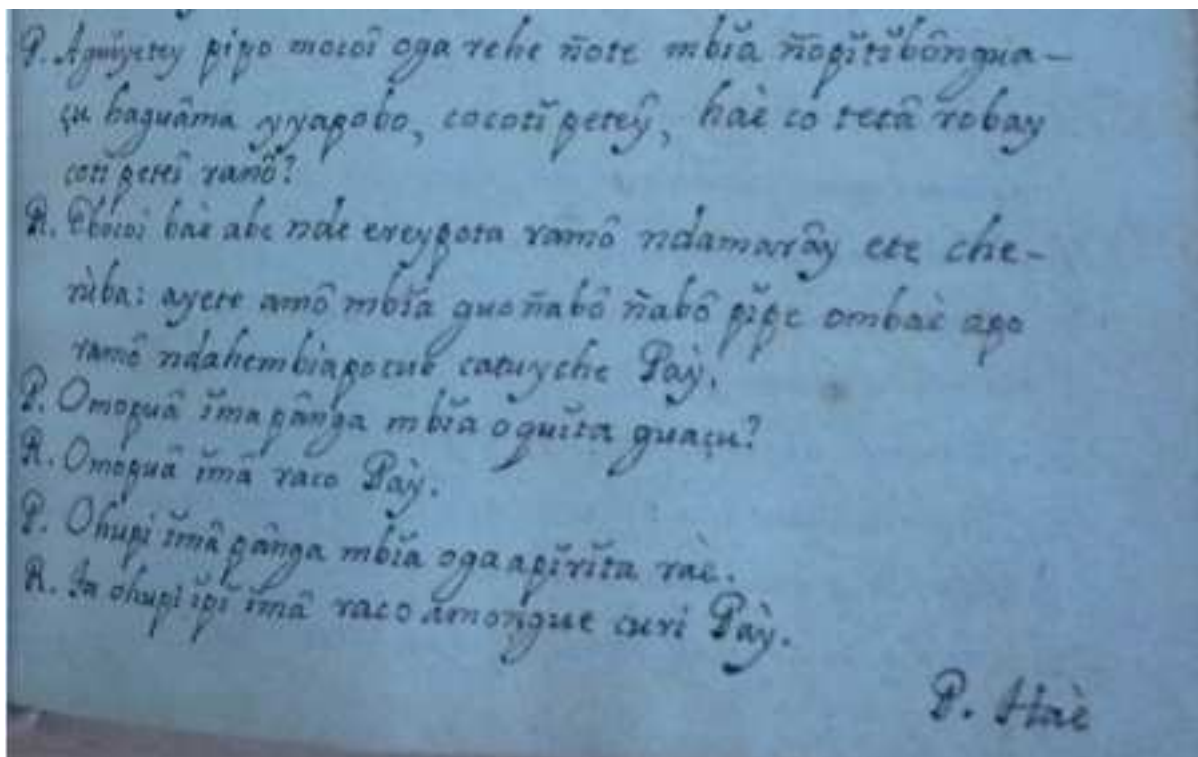 P. Aguĭyetey pipo mocoî oga rehe ñote mbĭa ñopĭtĭbôngua-
çu haguâma yyapobo, cocotĭ peteŷ, haè co tetâ robay
cotĭ peteî ramô?
R. Ebocoi baè abe nde ereypota ramô ndamarâŷ ete che-
rùba: ayete amô mbĭa guo ñabô ñabô pĭpe ombaè apo
ramô ndahembiapocue catuyche Paỳ.
P. Omopuâ ĭma pânga mbĭa oquĭta guaçu?
R. Omopuâ ĭmâ raco Paỳ.
P. Ohupi ĭmâ pânga mbĭa oga apĭrĭta raè.
R. Ta ohupi ĭpĭ ĭmâ raco amongue curi Paỳ.
P. Haè